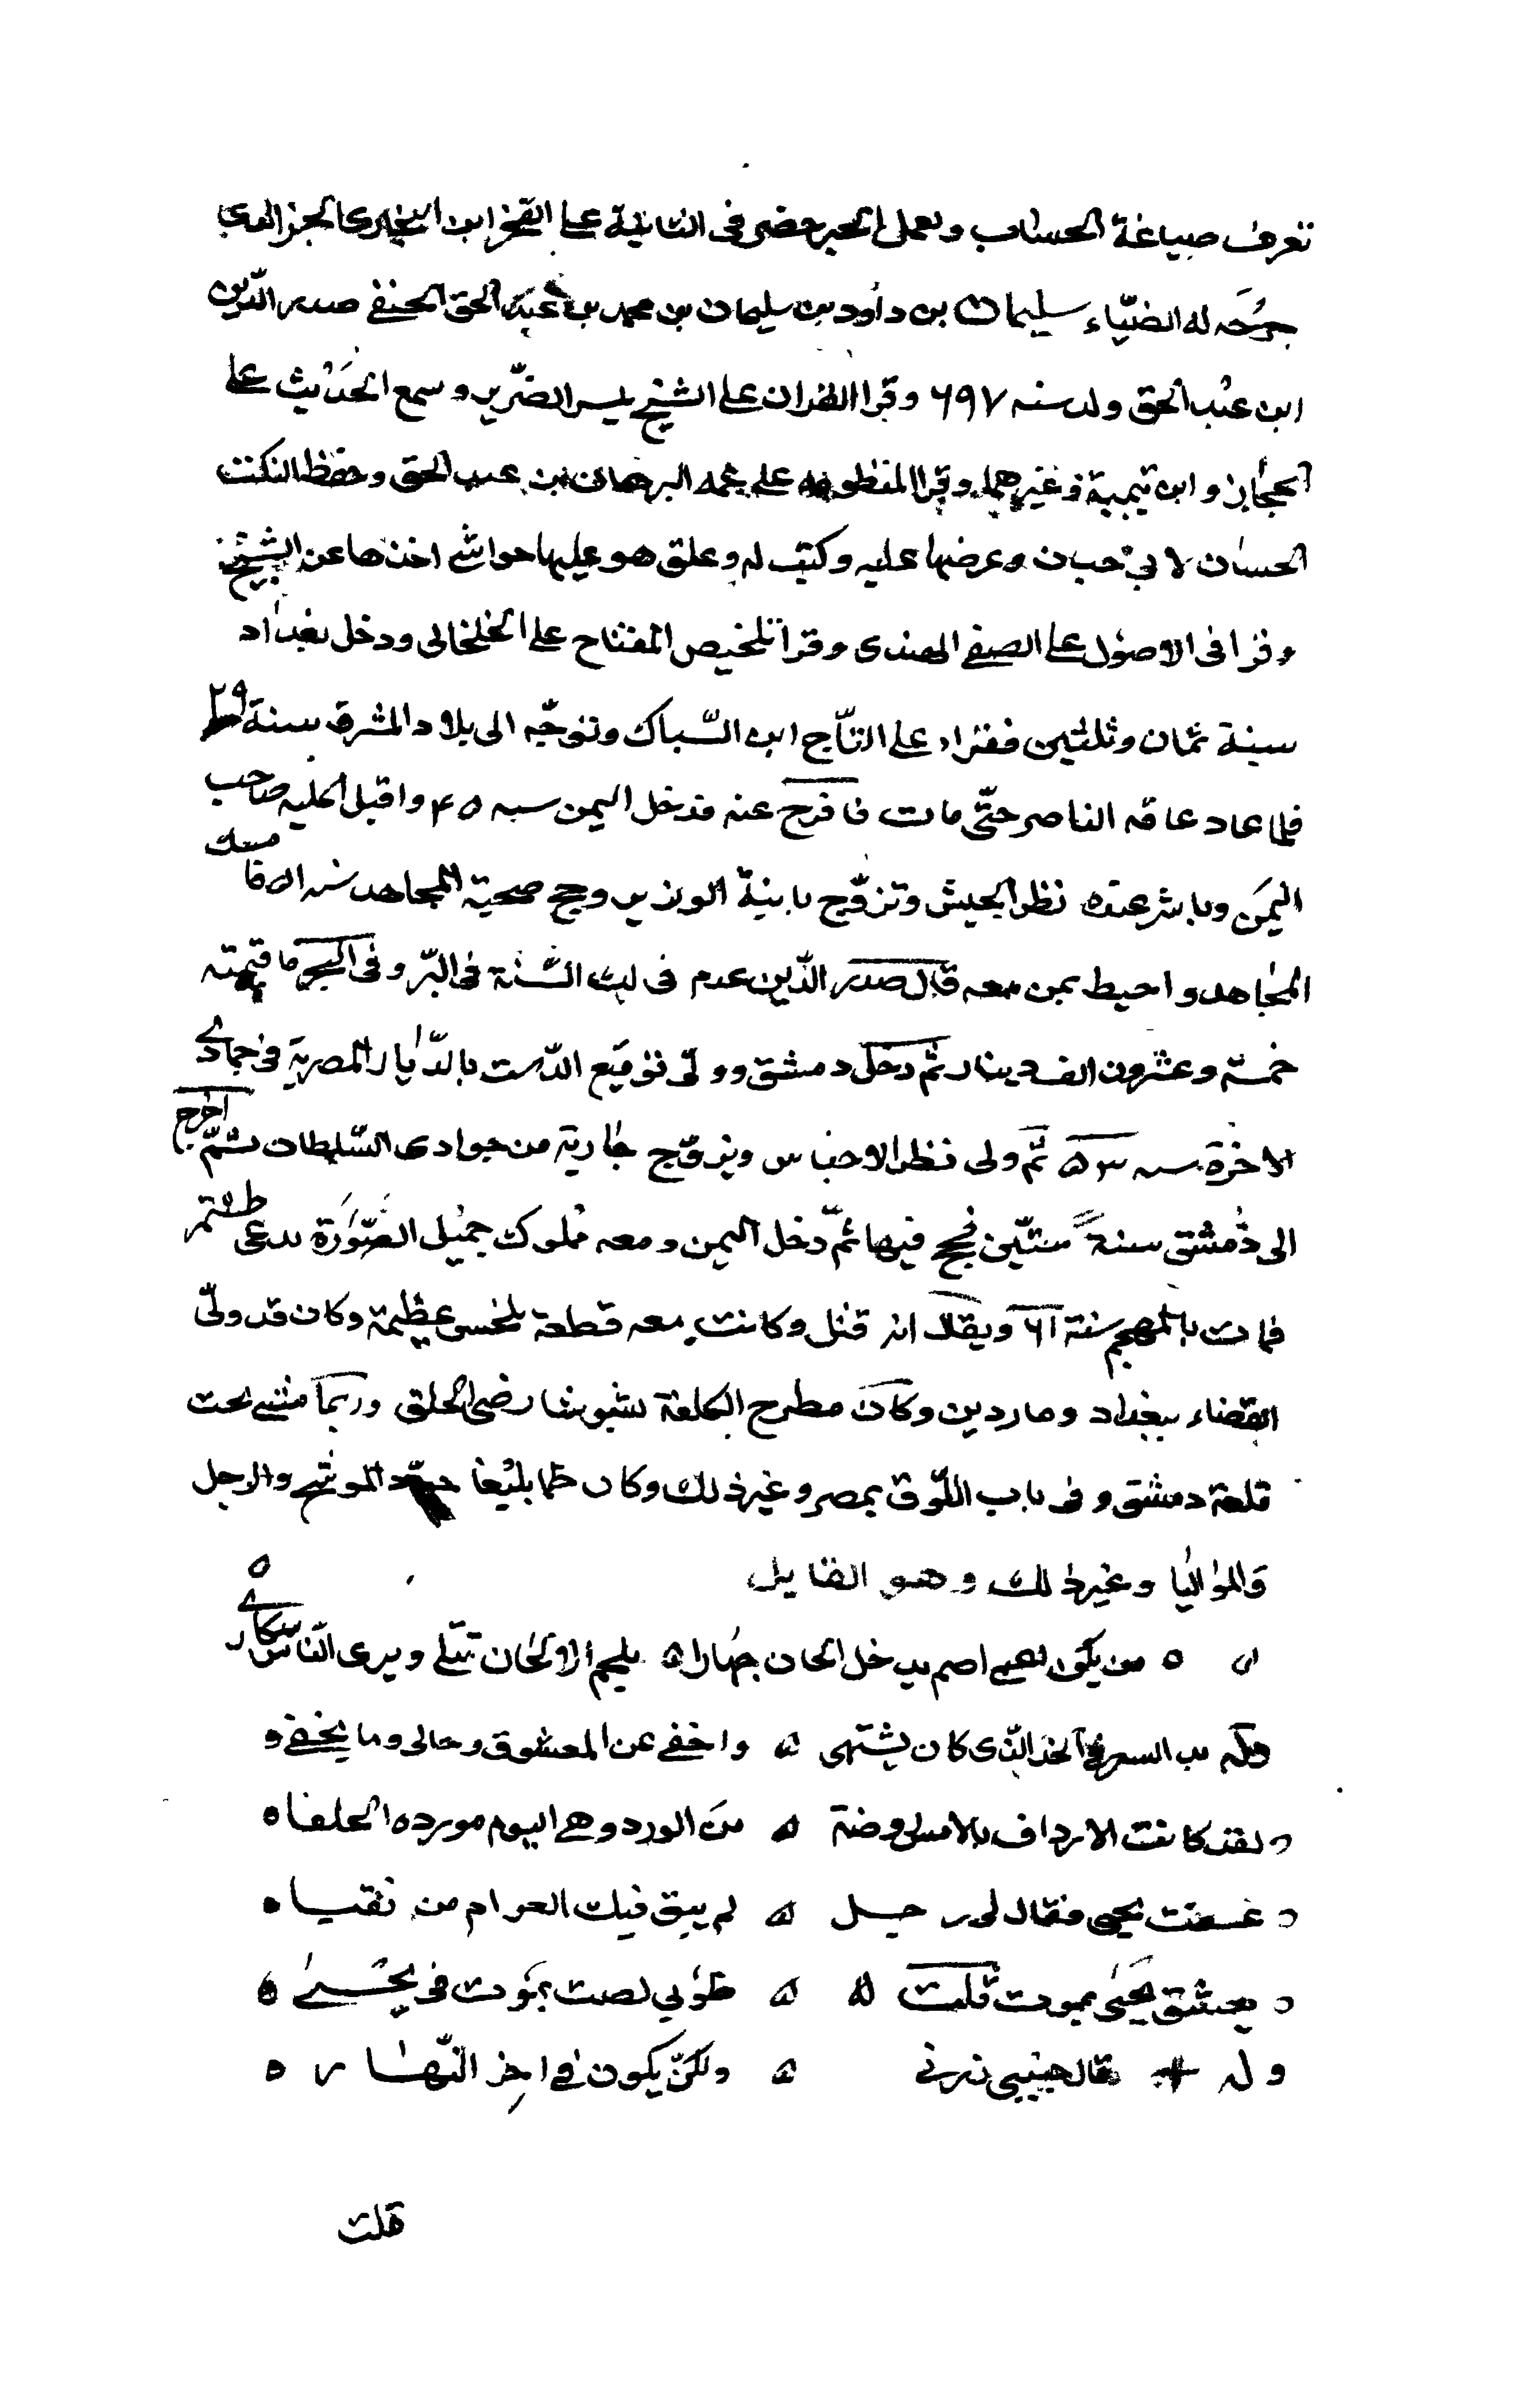 تعرف صياغة الحساب وبعمل الحبر حضر فى الثانية على الفخر ابن البخارى الجز الذى
خرّجه له الضيّاء سليمان بن داود بن سليمان بن محمد بن عبد الحق الحنفى صدر الدّين
ابن عبد الحق ولد سنه ٦٩٧ وقرا القران على الشيخ يس الضّرير وسمع الحديث على
الحجار وابن تيمية وغيرهما وقرا المنظومه على عمه البرهان ابن عبد الحق وحفظ النكت
الحسان لابي حيان وعرضها عليه وكتب له وعلق هو عليها حواشى اخذها عن الشيخ
وقرا فى الاصول على الصفى الهندى وقرأ تلخيص المفتاح على الخلخالى ودخل بغداد
سنة ثمان وثلثين فقراء على التّاج ابن السّباك وتوجّه الى بلاد المشرق سنة ٣٩
فلما عاد عاقه الناصر حتّى مات فافرج عنه فدخل اليمن سنه ٤٥ واقبل عليه صاحب
اليمن وباشر عنده نظر الجيش وتزوّج بابنة الوزير وحج صحبة المجاهد سنه ٥١ فامسك
المجاهد واحيط بمن معه قال صدر الدّين عدم لى تلك السّنة فى البرّ وفى البحر ما قيمته
خمسة وعشرون الف دينار ثم دخل دمشق وولى توقيع الدّست بالدّيار المصرية فى جمادى
الاخرة سنه ٥٣ ثم ولى نظر الاحباس وتزوّج جارية من جوارى السّلطان ثمّ اخرج
الى دمشق سنة ستّين فحج فيها ثمّ دخل اليمن ومعه مملوك جميل الصّورة يدعى طقتمر
فمات بالمهجم سنة ٦١ ويقال انه قتل وكانت معه قطعة بلخش عظيمة وكان قد ولّى
القضاء ببغداد وماردين وكان مطرح الكلفة بشوشا رضى الخلق وربما مشى تحت
قلعة دمشق وفى باب اللّوق بمصر وغير ذلك وكان ظما بليغا جوّد الموشح والزجل
والمواليا وغير ذلك وهو القايل
من يكن اعمى اصم يدخل الحان جهارا يسمع الالحان تتلى ويرى النّاس سكارى
السعر فى الخد الّذى كان يشتهى واخفى عن المعشوق وحالى وما يخفى
لقد كانت الارداف بالامس روضة من الورد وهى اليوم موردة الحلفا
عشقت يحيى فقال لى رجل لم يبق فيك الغرام من نقيا
يعشق يحيى يموت قلت طوبى لصب يموت فى يحيى
وله قال حبيبى زرنى ولكن يكون فى اخر النّهار
قلت